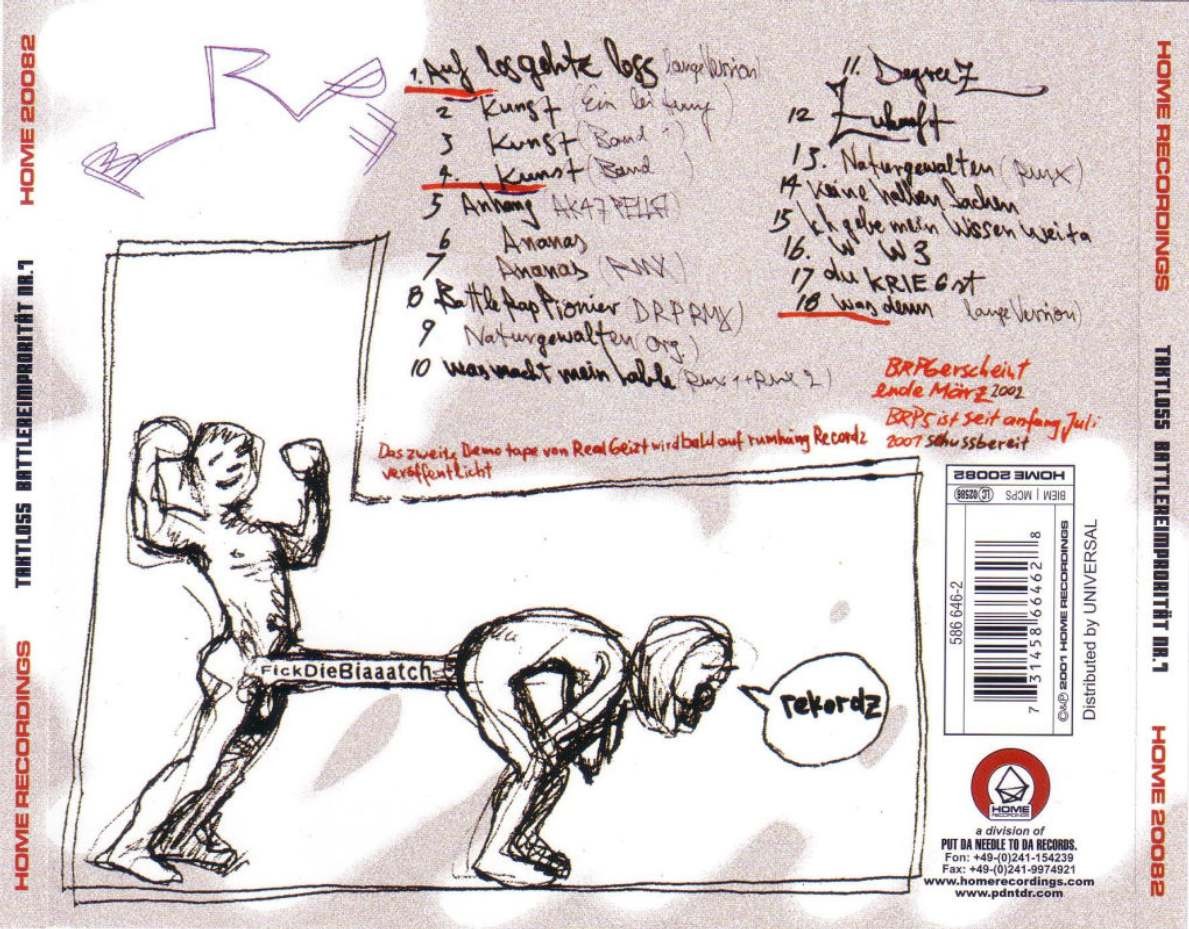 HOME 20082
TAKTLOSS BATTLEREIMPRORITÄT NR.1
HOME RECORDINGS
1. Auf losgehtz loss (lange Version)
2 Kunst (Einleitung)
3 Kunst (Band 1)
4. Kunst (Band )
5 Anhang AK47PELLA)
6 Ananas
7 Ananas (RMX)
8 BattleRapPionier DRP RMX)
9 Naturgewalten (org.)
10 was macht mein Lable (Rmx 1+Rmx 2)
11. DegreeZ
12 Zukunft
13. Naturgewalten (RMX)
14 Keine halben Sachen
15 Ich gebe mein Wissen weita
16. W W 3
17 du KRIEGst
18 was denn lange Version)
BRP6 erscheint
ende März 2002
BRP5 ist seit anfang Juli
2001 schussbereit
Das zweite Demotape von RealGeizt wird bald auf rumhäng Recordz
veröffentlicht
FickDieBiaaatch
rekordz
HOME 20082
LC 02586
BIEM | MCPS
586 646-2
7 31458 66462 8
©&℗ 2001 HOME RECORDINGS
Distributed by UNIVERSAL
HOME
RECORDINGS
a division of
PUT DA NEEDLE TO DA RECORDS.
Fon: +49-(0)241-154239
Fax: +49-(0)241-9974921
www.homerecordings.com
www.pdntdr.com
HOME RECORDINGS
TAKTLOSS BATTLEREIMPRORITÄT NR.1
HOME 20082